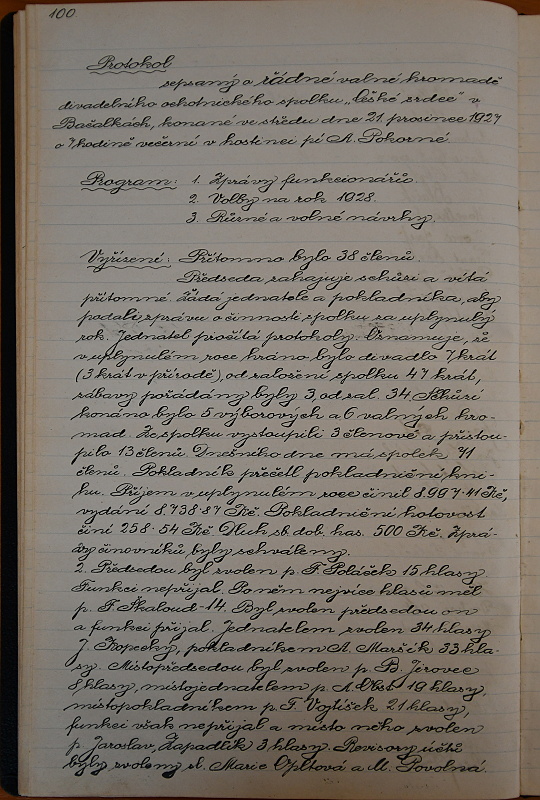 100.
Protokol
sepsaný o řádné valné hromadě
divadelního ochotnického spolku „České srdce" v
Bačalkách, konané ve středu dne 21. prosince 1927
o 7 hodině večerní v hostinci pí A. Pokorné.
Program: 1. Zprávy funkcionářů.
2. Volby na rok 1928.
3. Různé a volné návrhy.
Vyřízení: Přítomno bylo 38 členů.
Předseda zahajuje schůzi a vítá
přítomné. Žádá jednatele a pokladníka, aby
podali zprávu o činnosti spolku za uplynulý
rok. Jednatel pročítá protokoly. Oznamuje, že
v uplynulém roce hráno bylo divadlo 7 krát
(3 krát v přírodě), od založení spolku 47 krát,
zábavy pořádány byly 3, od zal. 34. Schůzí
konáno bylo 5 výborových a 6 valných hro-
mad. Ze spolku vystoupili 3 členové a přistou-
pilo 13 členů. Dnešního dne má spolek 71
členů. Pokladník přečetl pokladniční kni-
hu. Příjem v uplynulém roce činil 8.997·41 Kč,
vydání 8.738·87 Kč. Pokladniční hotovost
činí 258·54 Kč. Dluh sb. dob. has. 500 Kč. Zprá-
vy činovníků byly schváleny.
2. Předsedou byl zvolen p. F. Poláček 15 hlasy
Funkci nepřijal. Po něm nejvíce hlasů měl
p. F. Škaloud - 14. Byl zvolen předsedou on
a funkci přijal. Jednatelem zvolen 34 hlasy
J. Kopecký, pokladníkem A. Maršík 33 hla-
sy. Místopředsedou byl zvolen p. B. Jirovec
8 hlasy, místojednatelem p. A. Obst 19 hlasy,
místopokladníkem p. F. Vojtíšek 21 hlasy,
funkci však nepřijal a místo něho zvolen
p. Jaroslav Zapadlík 3 hlasy. Revisory účtů
byly zvoleny sl. Marie Opltová a M. Povolná.